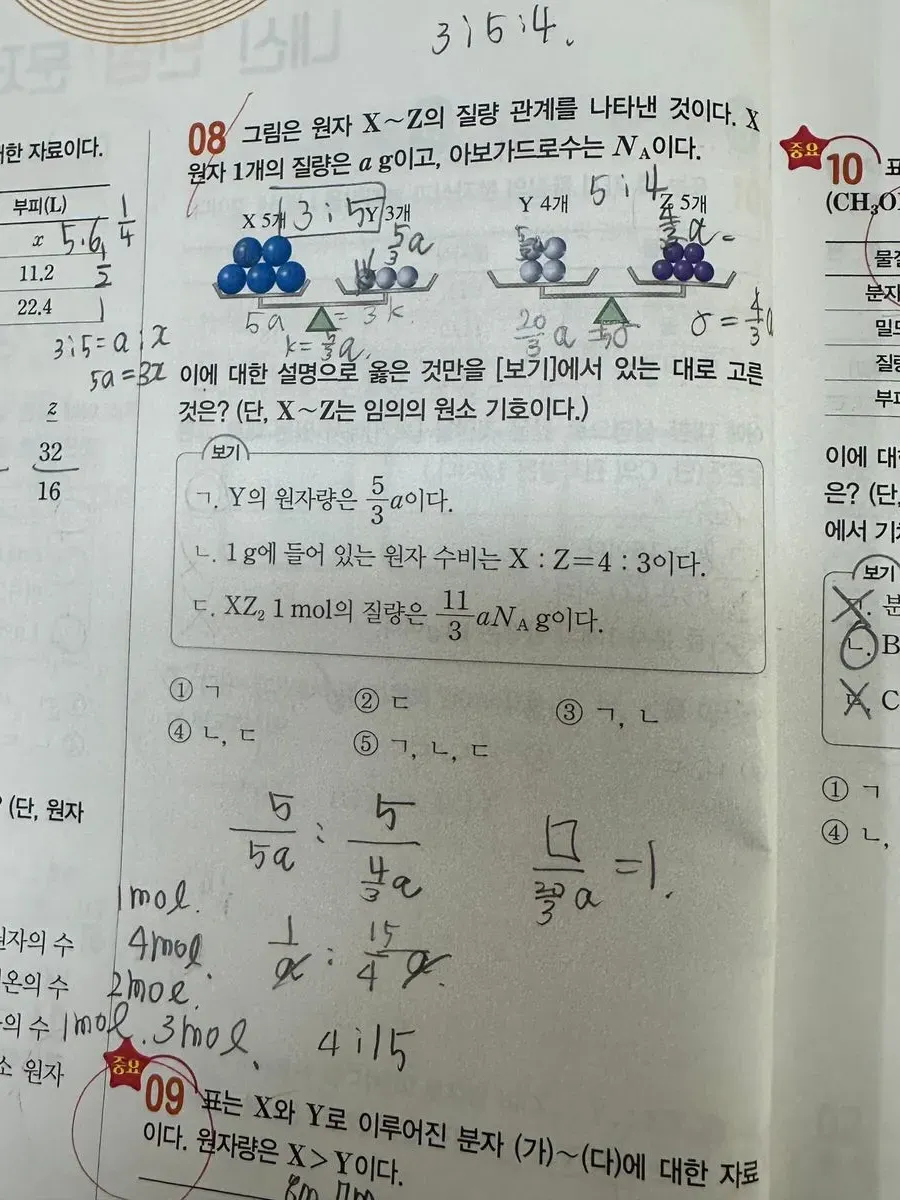 3 : 5 : 4.
08 그림은 원자 X~Z의 질량 관계를 나타낸 것이다. X
원자 1개의 질량은 a g이고, 아보가드로수는 N_A이다.
X 5개
3 : 5
Y 3개
5/3 a
Y 4개
5 : 4
Z 5개
5a = 3k.
k = 5/3 a.
20/3 a = 5σ
σ = 4/3
이에 대한 설명으로 옳은 것만을 [보기]에서 있는 대로 고른
것은? (단, X~Z는 임의의 원소 기호이다.)
보기
ㄱ. Y의 원자량은 5/3 a이다.
ㄴ. 1 g에 들어 있는 원자 수비는 X : Z=4 : 3이다.
ㄷ. XZ₂ 1 mol의 질량은 11/3 aN_A g이다.
① ㄱ ② ㄷ ③ ㄱ, ㄴ
④ ㄴ, ㄷ ⑤ ㄱ, ㄴ, ㄷ
5/5a : 5/(4/3 a)
□/(20/3 a) = 1.
1/a : 15/4 a.
4 : 15
중요
09 표는 X와 Y로 이루어진 분자 (가)~(다)에 대한 자료
이다. 원자량은 X>Y이다.
한 자료이다.
부피(L)
x 5.6 1/4
11.2 1/2
22.4 1
3 : 5 = a : x
5a = 3x
z
32
16
(단, 원자
1mol.
원자의 수 4mol
온의 수 2mol.
의 수 1mol. 3mol.
소 원자
중요
10 표
(CH₃OH
물질
분자
밀도
질량
부피
이에 대한
은? (단,
에서 기체
보기
ㄱ. 분
ㄴ. B
ㄷ. C
① ㄱ
④ ㄴ,